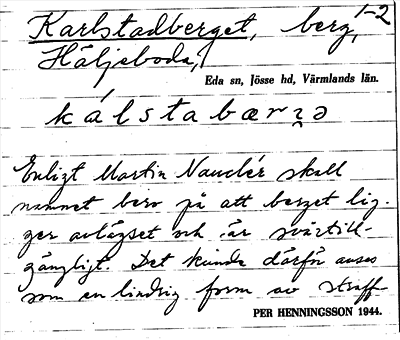 Karlstadberget, berg, 1-2
Häljeboda,
Eda sn, Jösse hd, Värmlands län.
kálstabærn̥ə
Enligt Martin Nauclér skall
namnet bero på att berget lig-
ger avlägset och är svårtill-
gängligt. Det kunde därför anses
som en lindrig form av straff
PER HENNINGSSON 1944.